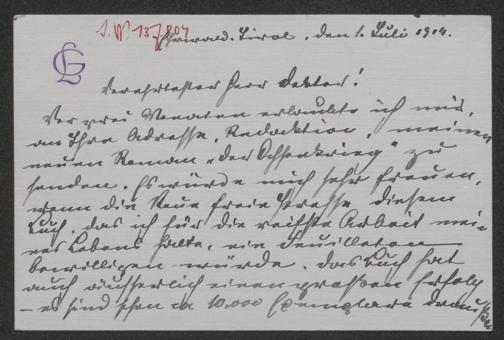 I. N. 137.804
Ehrwald. Tirol, den 1. Juli 1914.
GL
Verehrtester Herr Doktor!
Vor zwei Monaten erlaubte ich mir,
an Ihre Adresse, Redaktion, meinen
neuen Roman „Der Ochsenkrieg" zu
senden. Es würde mich sehr freuen,
wenn die Neue freie Presse diesem
Buch, das ich für die reifste Arbeit mei-
nes Lebens halte, ein Feuilleton
bewilligen würde. Das Buch hat
auch äusserlich einen grossen Erfolg
– es sind schon ca 10.000 Exemplare